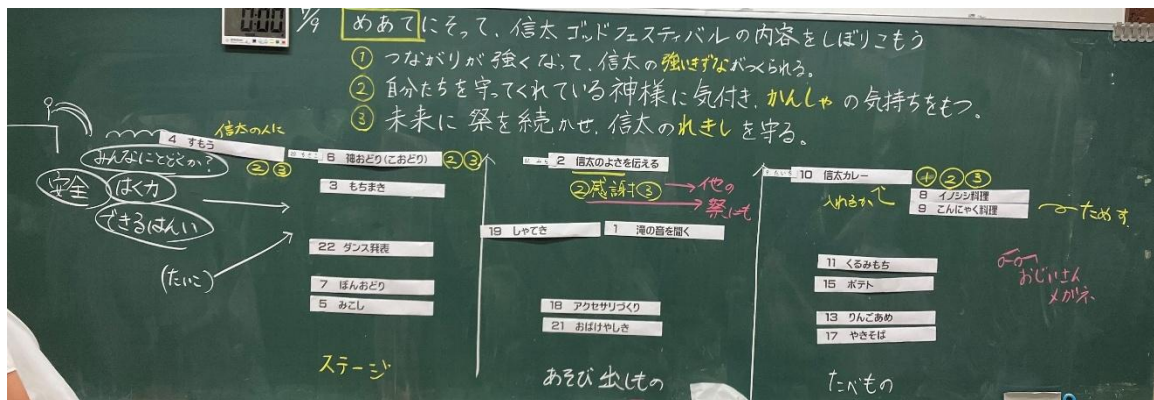 0:00
7/9 めあてにそって、信太ゴッドフェスティバルの内容をしぼりこもう
① つながりが強くなって、信太の強いきずながつくられる。
② 自分たちを守ってくれている神様に気付き、かんしゃの気持ちをもつ。
③ 未来に祭を続かせ、信太のれきしを守る。
信太の人に
4 すもう
②③
みんなにとどくか?
安全
はく力
できるはんい
(たいこ)
6 獅おどり(こおどり) ②③
3 もちまき
22 ダンス発表
7 ぼんおどり
5 みこし
ステージ
2 信太のよさを伝える
②感謝③→他の
祭にも
19 しゃてき
1 滝の音を聞く
18 アクセサリづくり
21 おばけやしき
あそび出しもの
10 信太カレー ①②③
入れるかで
8 イノシシ料理
9 こんにゃく料理
ためす
11 くるみもち
15 ポテト
13 りんごあめ
17 やきそば
おじいさん
メガネ
たべもの